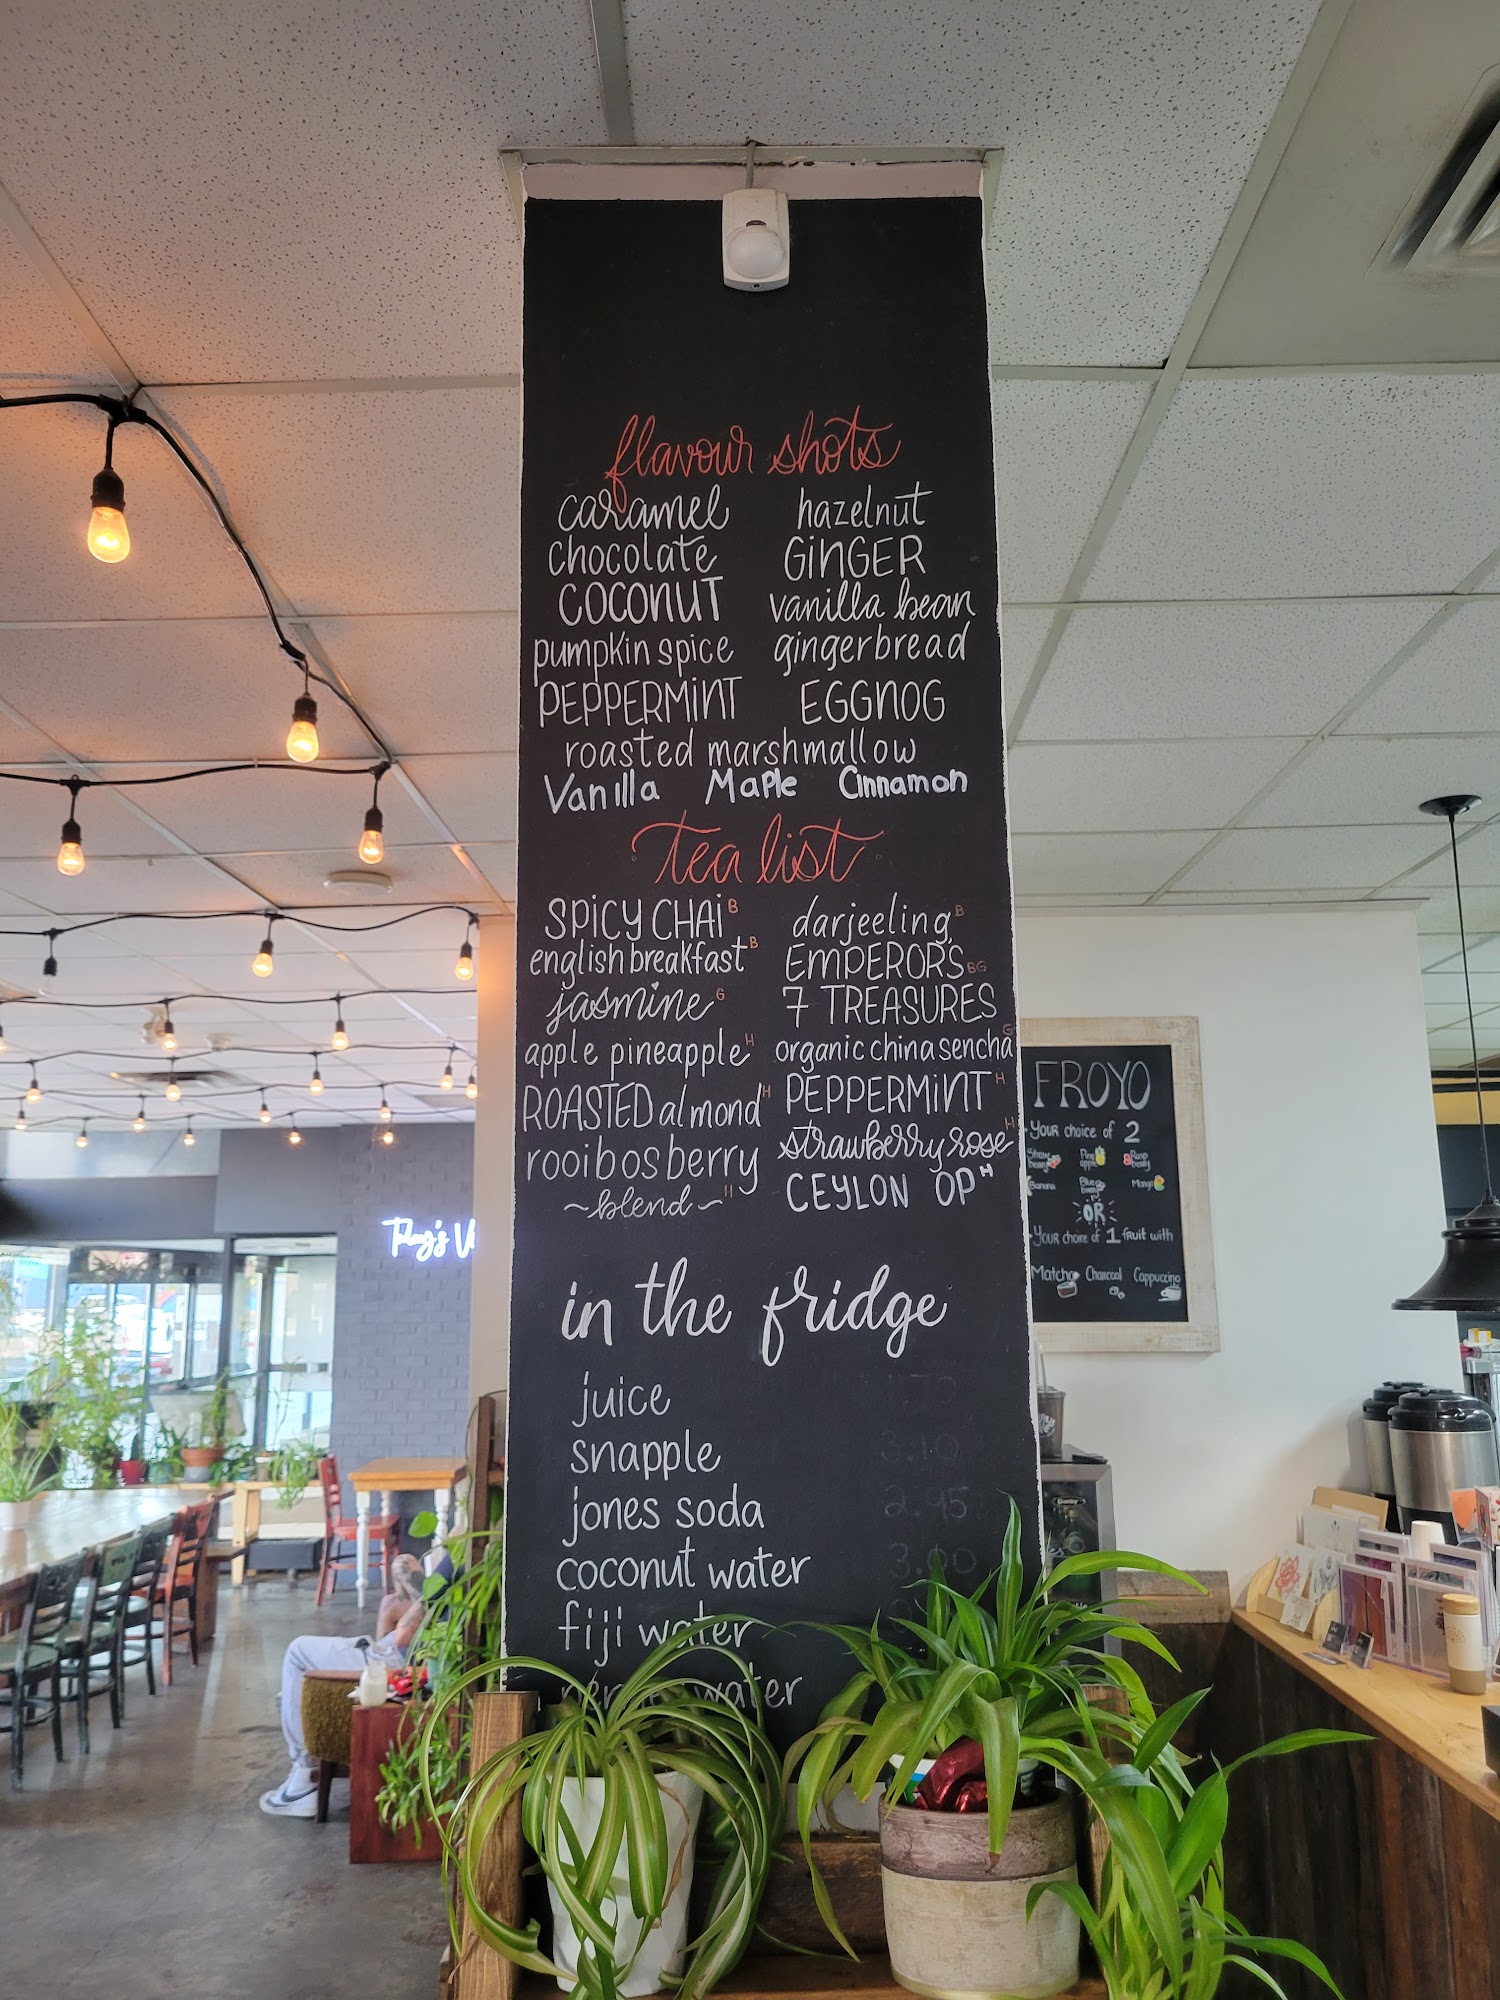 flavour shots
caramel hazelnut
chocolate GiNGER
COCONUT vanilla bean
pumpkin spice gingerbread
PEPPERMiNT EGGNOG
roasted marshmallow
Vanilla Maple Cinnamon
tea list
SPiCY CHAi B darjeeling B
english breakfast B EMPEROR'S BG
jasmine G 7 TREASURES
apple pineapple H organic china sencha G
ROASTED almond H PEPPERMiNT H
rooibos berry strawberry rose H
~blend~ H CEYLON OP H
in the fridge
juice
snapple 3.10
jones soda 2.95
coconut water 3.00
fiji water
water
FROYO
Your choice of 2
Straw berry Pine apple Rasp berry
Banana Blue berry Mango
OR
Your choice of 1 fruit with
Matcha Charcoal Cappuccino
Today's